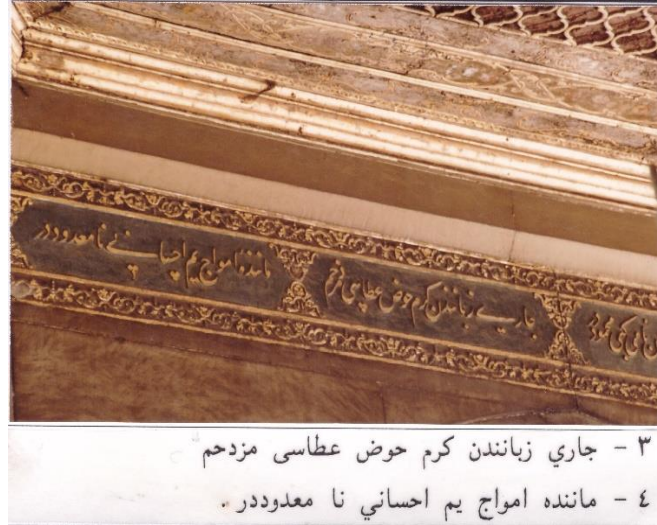 جاري زبانندن كرم حوض عطاسى مزدحم
ماننده امواج يم احساني نا معدوددر
٣ - جاري زبانندن كرم حوض عطاسى مزدحم
٤ - ماننده امواج يم احساني نا معدوددر .